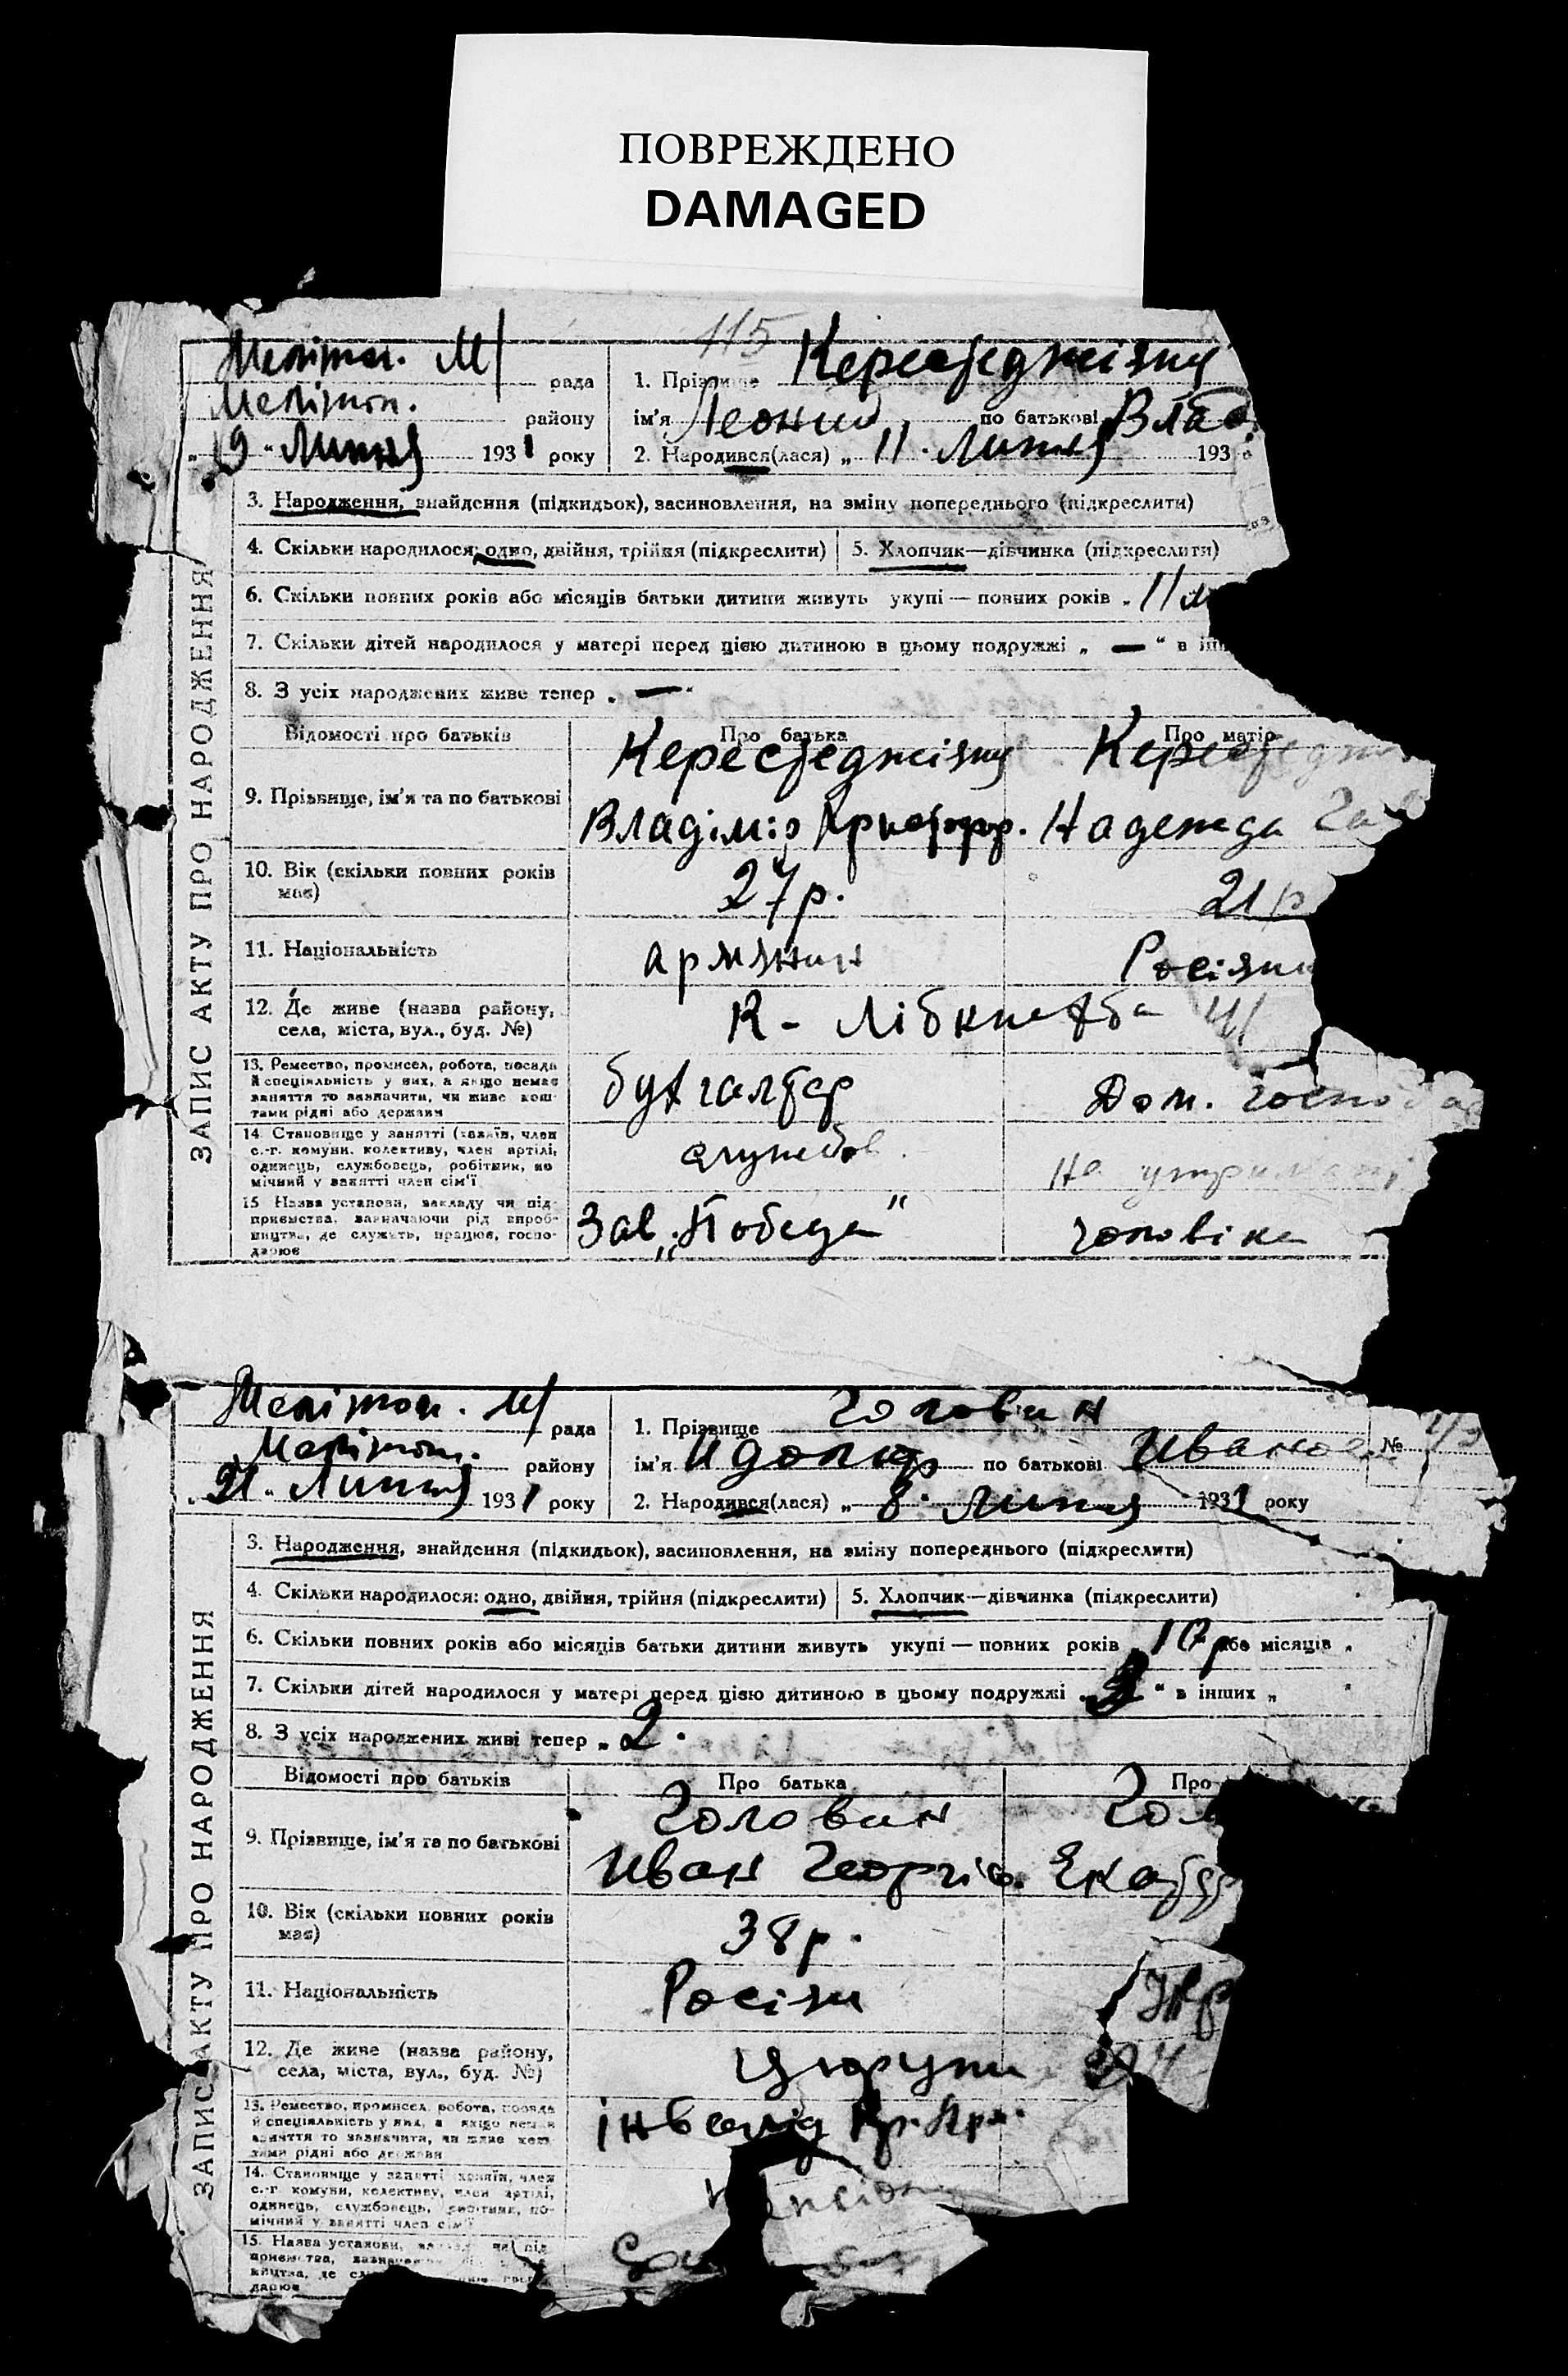 ПОВРЕЖДЕНО
DAMAGED
115
Меліт. М/ рада
Меліт. району
"19" Липня 1931 року
1. Прізвище
ім'я Леонид по батькові Влад.
2. Народився(лася) „ 11 " Липня 193
ЗАПИС АКТУ ПРО НАРОДЖЕННЯ
3. Народження, знайдення (підкидьок), засиновлення, на зміну попереднього (підкреслити)
4. Скільки народилося: одно, двійня, трійня (підкреслити) 5. Хлопчик—дівчинка (підкреслити)
6. Скільки повних років або місяців батьки дитини живуть укупі — повних років „ 11 м
7. Скільки дітей народилося у матері перед цією дитиною в цьому подружжі „ — “ в
8. З усіх народжених живе тепер „ — "
Відомості про батьків Про батька Про матір
9. Прізвище, ім'я та по батькові
Владімір Христофор. Надежда
10. Вік (скільки повних років має) 27 р. 21 р
11. Національність армянин Росіянк
12. Де живе (назва району, села, міста, вул., буд. №) К- Лібкнехта
13. Ремество, промисел, робота, посада й спеціяльність у них, а якщо немає заняття то зазначити, чи живе коштами рідні або держави бухгалтер Дом. господар
14. Становище у занятті (хазяїн, член с.-г. комуни, колективу, член артілі, одинець, службовець, робітник, помічний у занятті член сім'ї службов. На утриманні
15 Назва установи, закладу чи підприємства, зазначаючи рід виробництва, де служить, працює, господарює Зав „Победа" чоловіка
Меліт. М/ рада
Меліт. району
"21" Липня 1931 року
1. Прізвище Головин
ім'я по батькові Иванов. №
2. Народився(лася) „ 8 " Липня 1931 року
ЗАПИС АКТУ ПРО НАРОДЖЕННЯ
3. Народження, знайдення (підкидьок), засиновлення, на зміну попереднього (підкреслити)
4. Скільки народилося: одно, двійня, трійня (підкреслити) 5. Хлопчик—дівчинка (підкреслити)
6. Скільки повних років або місяців батьки дитини живуть укупі — повних років „ 10 р або місяців „
7. Скільки дітей народилося у матері перед цією дитиною в цьому подружжі „ “ в інших „ "
8. З усіх народжених живі тепер „ 2 "
Відомості про батьків Про батька Про
9. Прізвище, ім'я та по батькові Головин Гол
Иван Георгіев. Екатер
10. Вік (скільки повних років має) 38 р.
11. Національність Росіян Укр
12. Де живе (назва району, села, міста, вул., буд. №) Цюрупи
13. Ремество, промисел, робота, посада й спеціяльність у них, а якщо немає заняття то зазначити, чи живе коштами рідні або держави інвалід
14. Становище у занятті (хазяїн, член с.-г. комуни, колективу, член артілі, одинець, службовець, робітник, помічний у занятті член сім'ї
15. Назва установи,